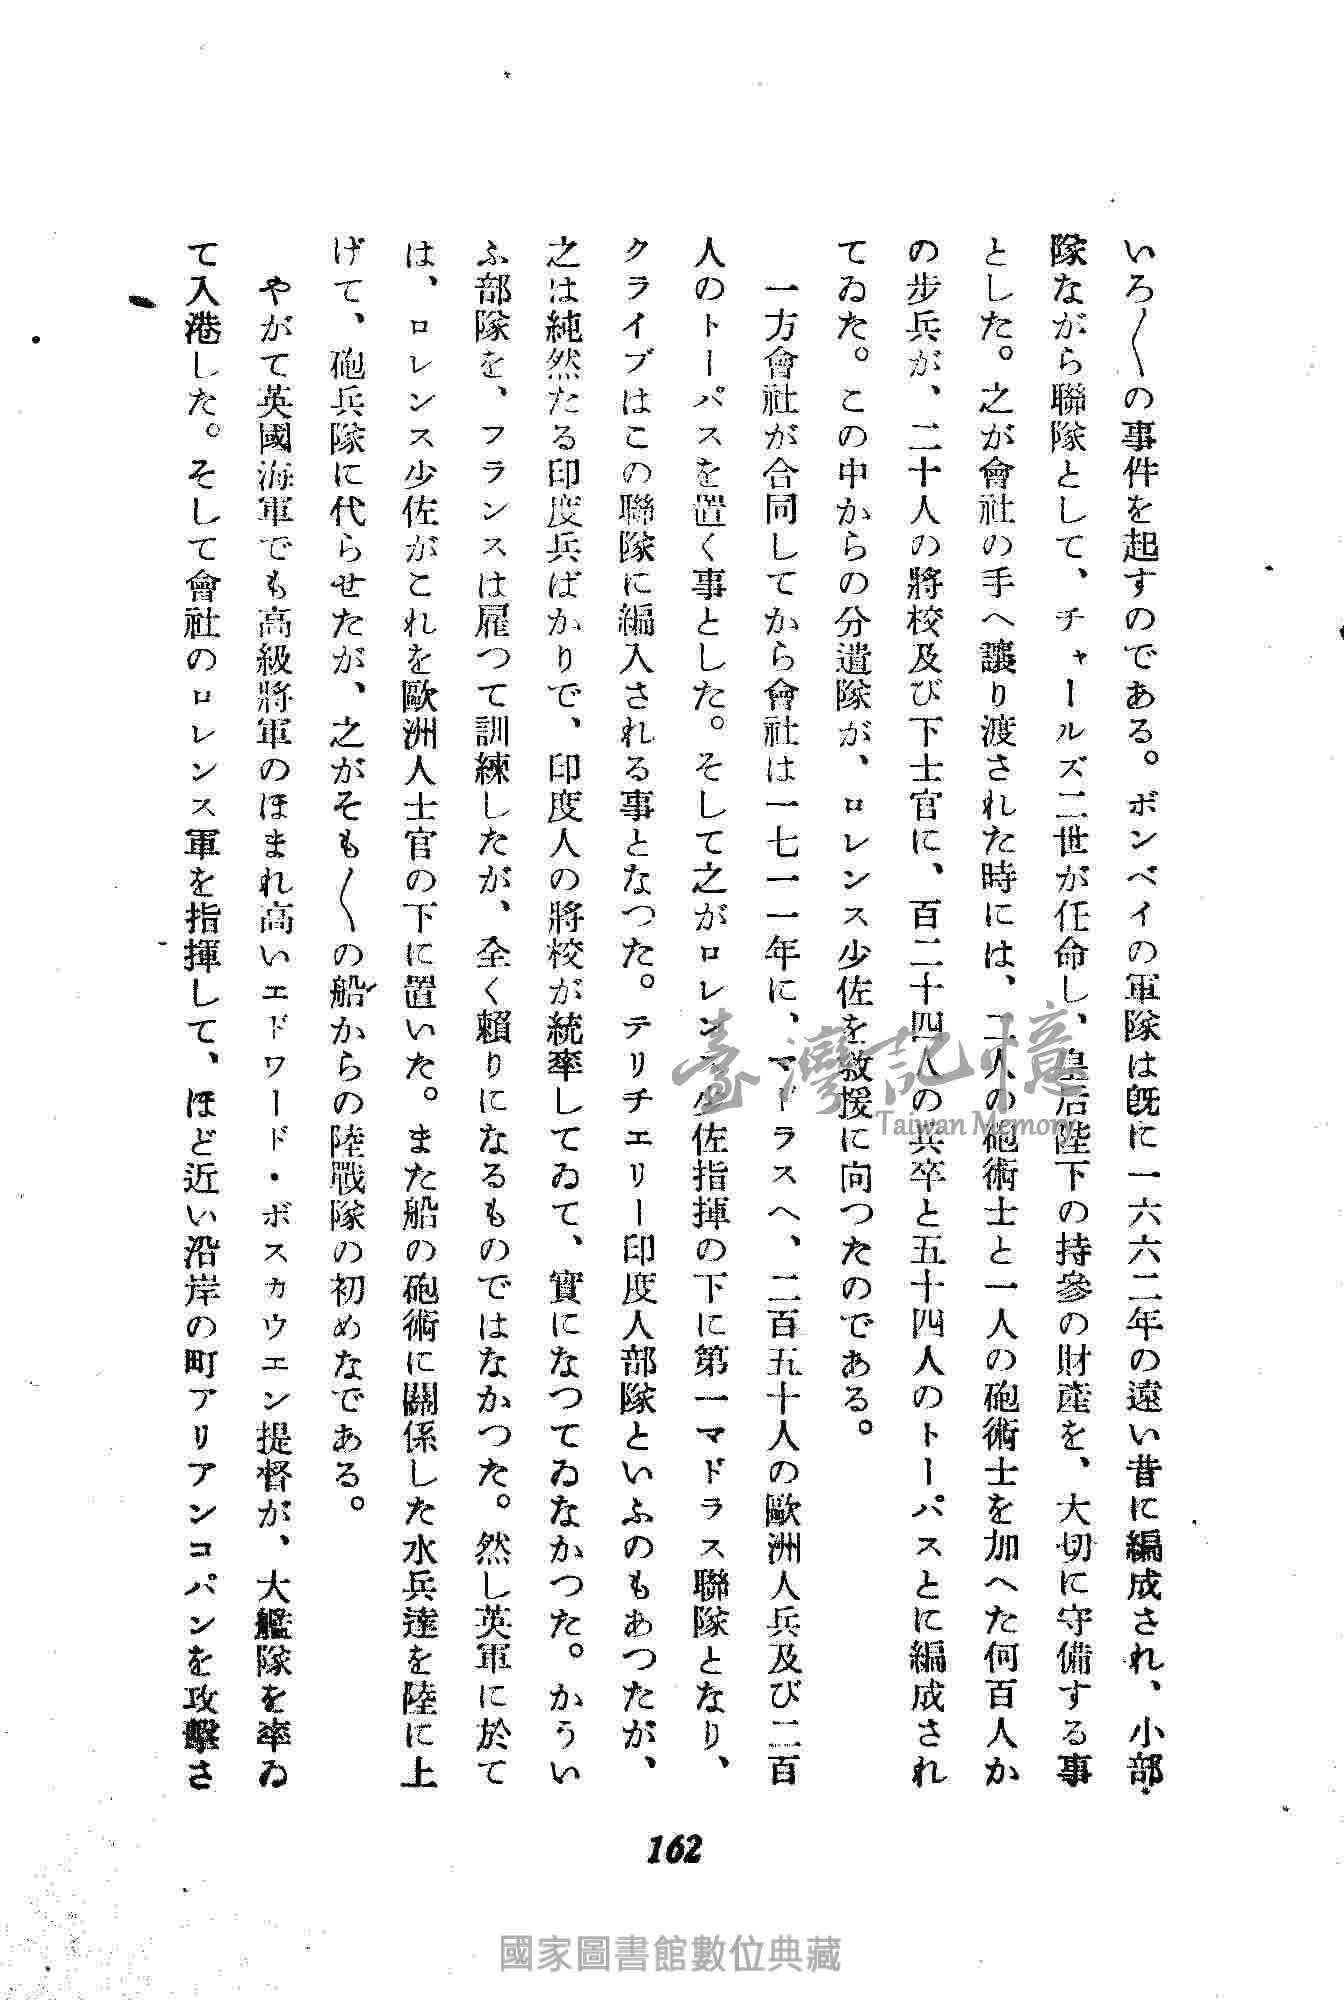 いろ〳〵の事件を起すのである。ボンベイの軍隊は既に一六六二年の遠い昔に編成され、小部
隊ながら聯隊として、チャールズ二世が任命し、皇后陛下の持參の財產を、大切に守備する事
とした。之が會社の手へ讓り渡された時には、二人の砲術士と一人の砲術士を加へた何百人か
の步兵が、二十人の將校及び下士官に、百二十四人の兵卒と五十四人のトーパスとに編成され
てゐた。この中からの分遣隊が、ロレンス少佐を救援に向つたのである。
一方會社が合同してから會社は一七一一年に、マドラスへ、二百五十人の歐洲人兵及び二百
人のトーパスを置く事とした。そして之がロレンス少佐指揮の下に第一マドラス聯隊となり、
クライブはこの聯隊に編入される事となつた。テリチエリー印度人部隊といふのもあつたが、
之は純然たる印度兵ばかりで、印度人の將校が統率してゐて、實になつてゐなかつた。かうい
ふ部隊を、フランスは雇つて訓練したが、全く賴りになるものではなかつた。然し英軍に於て
は、ロレンス少佐がこれを歐洲人士官の下に置いた。また船の砲術に關係した水兵達を陸に上
げて、砲兵隊に代らせたが、之がそも〳〵の船からの陸戰隊の初めなである。
やがて英國海軍でも高級將軍のほまれ高いエドワード・ボスカウエン提督が、大艦隊を率ゐ
て入港した。そして會社のロレンス軍を指揮して、ほど近い沿岸の町アリアンコパンを攻擊さ
162
臺灣記憶
Taiwan Memory
國家圖書館數位典藏